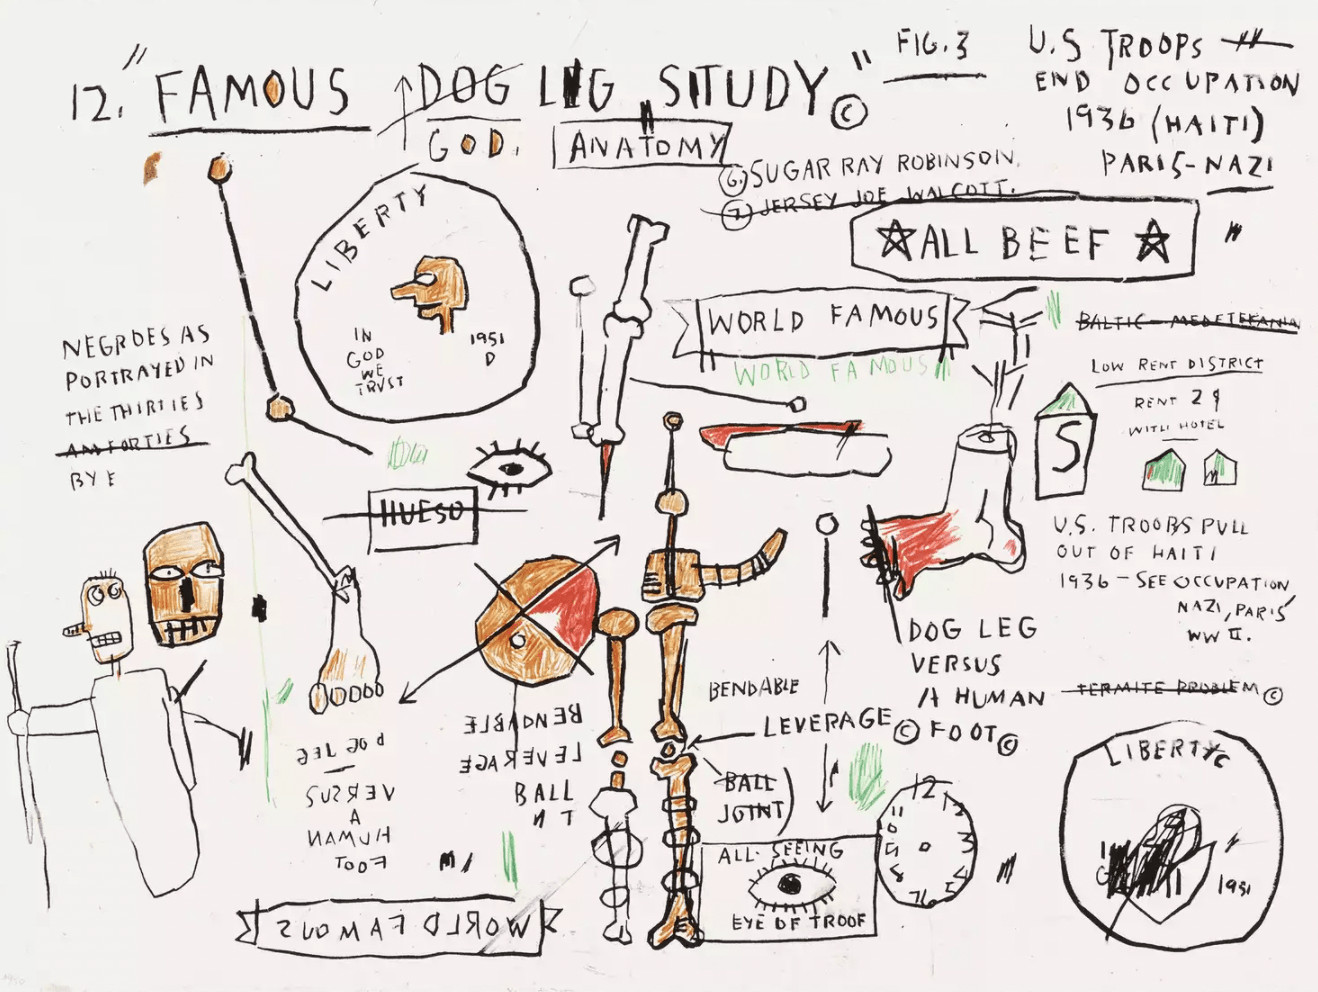 12. "FAMOUS DOG LEG STUDY" ©
GOD.
ANATOMY
FIG. 3
U.S TROOPS
END OCCUPATION
1936 (HAITI)
PARIS-NAZI
6. SUGAR RAY ROBINSON.
7. JERSEY JOE WALCOTT.
ALL BEEF
LIBERTY
IN
GOD
WE
TRVST
1951
D
WORLD FAMOUS
WORLD FAMOUS
NEGROES AS
PORTRAYED IN
THE THIRTIES
AN FORTIES
BY E
HUESO
LOW RENT DISTRICT
RENT 2
WITH HOTEL
S
U.S. TROOPS PULL
OUT OF HAITI
1936 - SEE OCCUPATION
NAZI, PARIS
WW II.
DOG LEG
VERSUS
A HUMAN
FOOT ©
TERMITE PROBLEM ©
BENDABLE
LEVERAGE ©
BALL
JOINT)
BENDABLE
LEVERAGE
BALL
N T
DOG LEG
VERSUS
A
HUMAN
FOOT
ALL. SEEING
EYE OF TROOF
12
LIBERTY
1951
WORLD FAMOUS